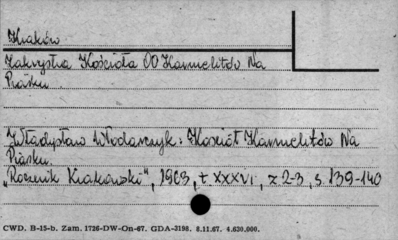 Kraków
Zakrystia Kościoła OO Karmelitów Na
Piasku.
Władysław Włodarczyk: Kościół Karmelitów Na
Piasku.
"Rocznik Krakowski", 1963, t XXXVI, z 2-3, s. 139-140
CWD. B-15-b. Zam. 1726-DW-On-67. GDA-2198. 8.11.67. 4.630.000.